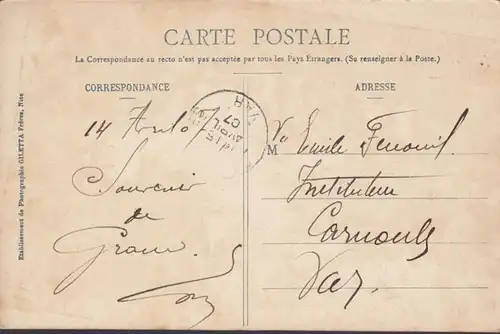 CARTE POSTALE
La Correspondance au recto n'est pas acceptée par tous les Pays Étrangers. (Se renseigner à la Poste.)
CORRESPONDANCE
14
Souvenir
de
ADRESSE
M Emile Fenouil
Instituteur
Carnoules
Var.
VAR
AVRIL
07
Etablissement de Photographie GILETTA Frères, Nice